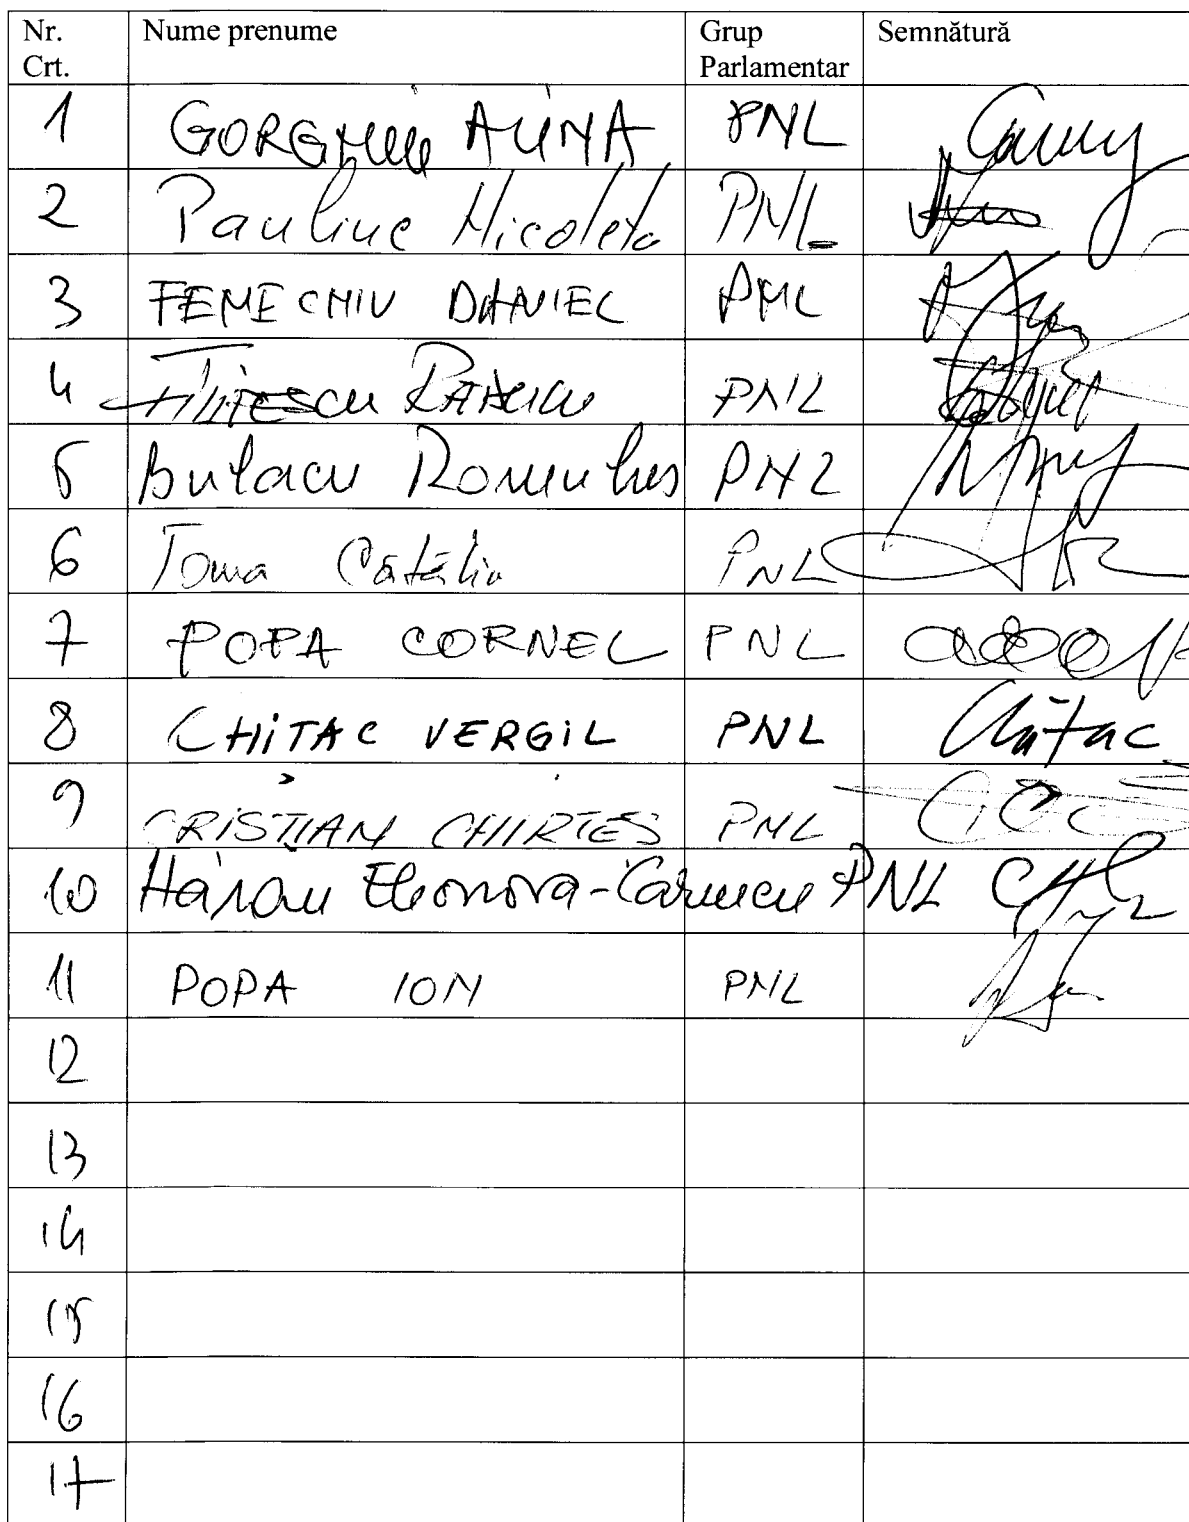 Nr. Crt. Nume prenume Grup Parlamentar Semnătură
1 GORGHIU ALINA PNL
2 Pauliuc Nicoleta PNL
3 FENECHIU DANIEL PNL
4 PNL
5 Bulacu Romulus PNL
6 Toma Cătălin PNL
7 POPA CORNEL PNL
8 CHITAC VERGIL PNL Chițac
9 CRISTIAN CHIRTEȘ PNL
10 Hărău Eleonora-Carmen PNL
11 POPA ION PNL
12
13
14
15
16
17